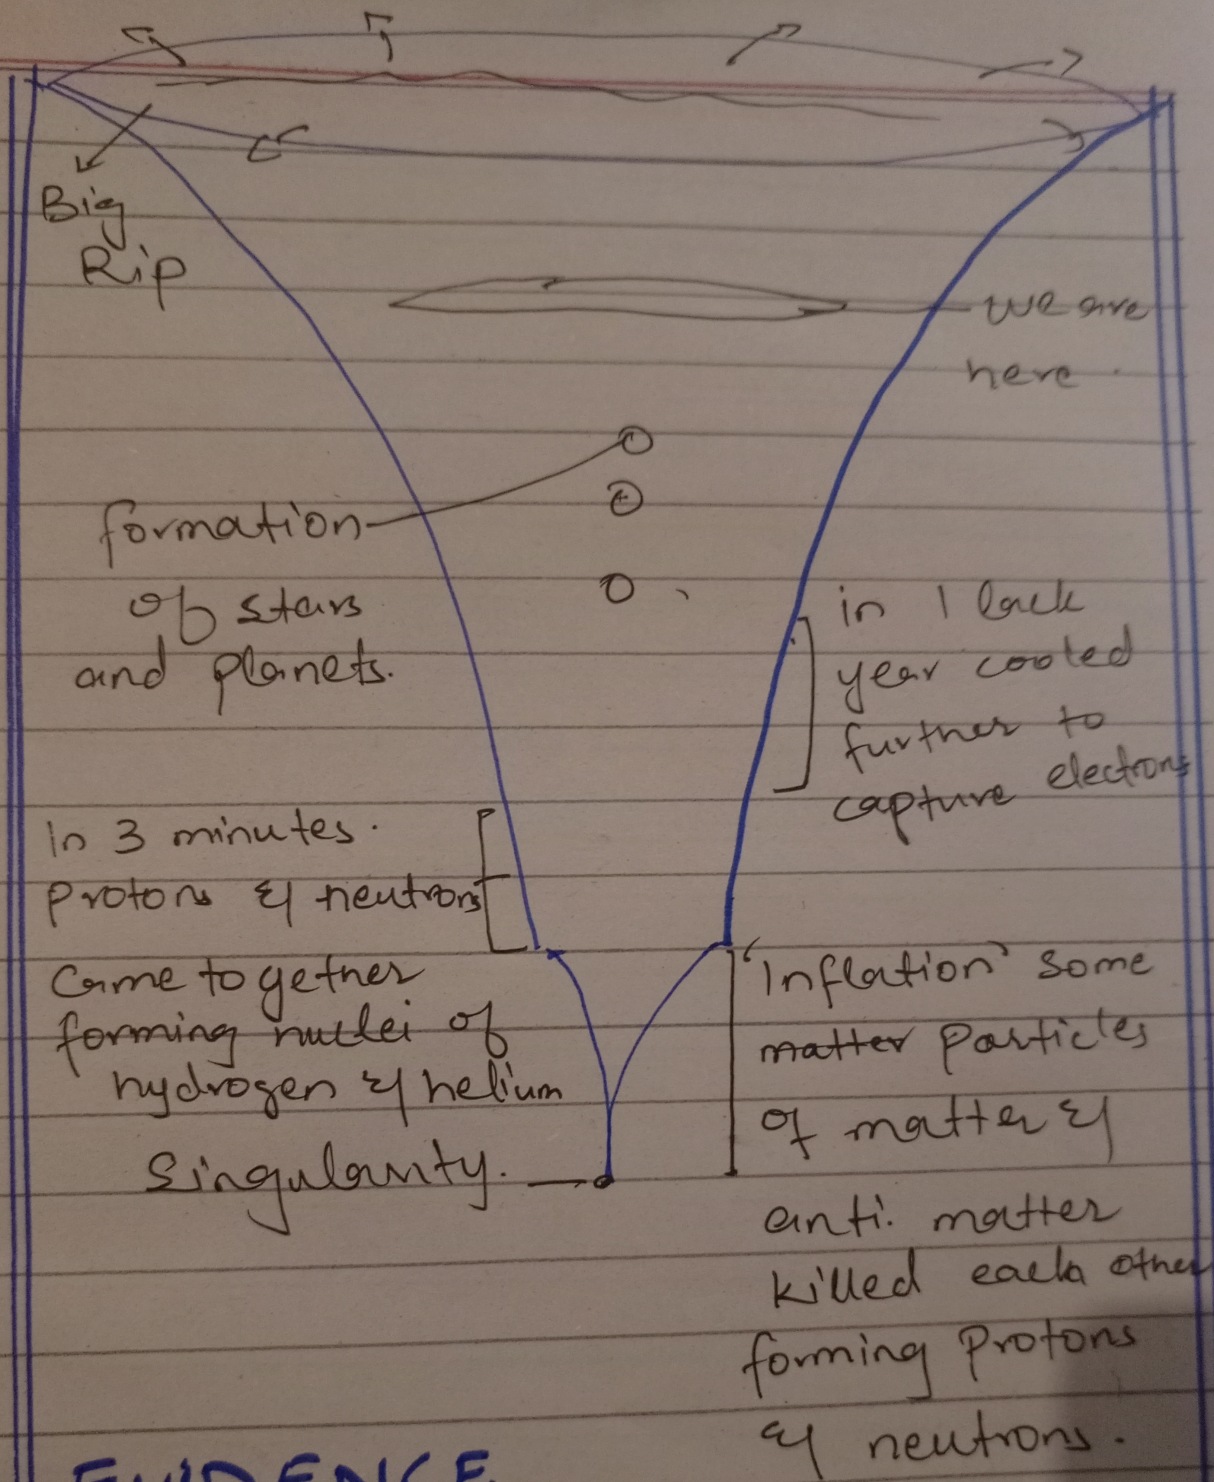 Big
Rip
we are
here.
formation
of stars
and planets.
in 1 lack
year cooled
further to
capture electrons
in 3 minutes.
protons & neutrons
came together
forming nuclei of
hydrogen & helium
Singularity.
'Inflation' some
matter particles
of matter &
anti. matter
killed each other
forming protons
& neutrons.
EVIDENCE